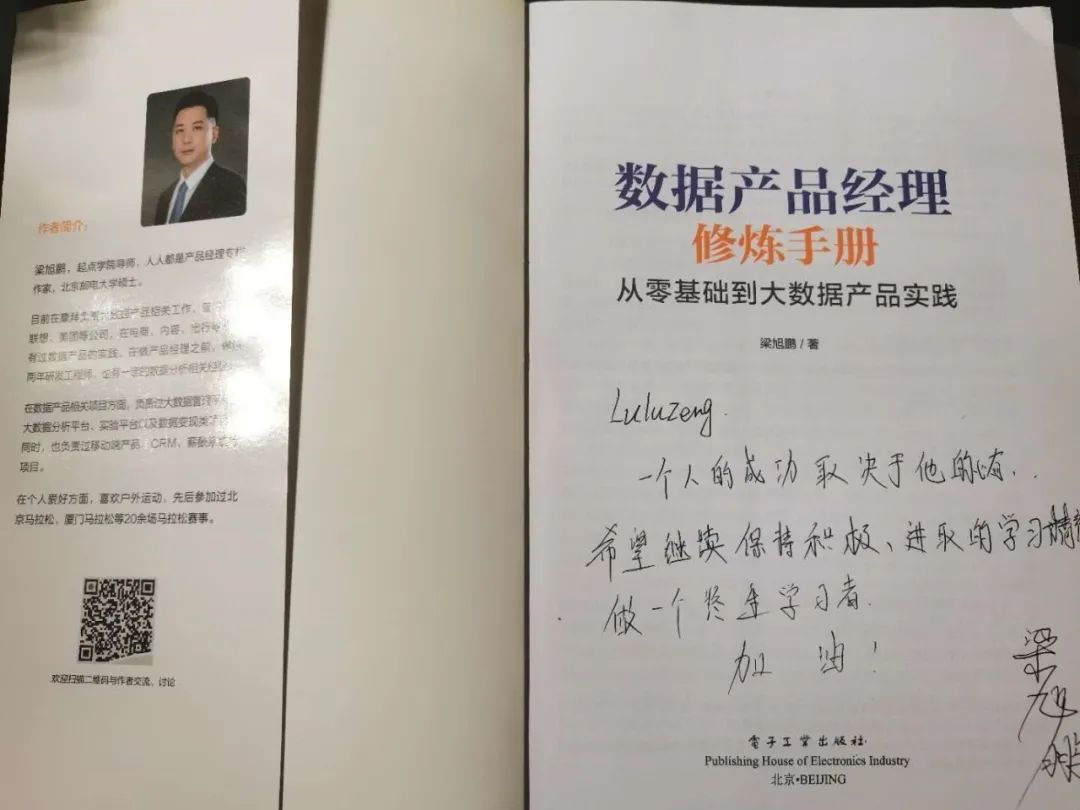 作者简介：
梁旭鹏，起点学院导师，人人都是产品经理专栏
作家，北京邮电大学硕士。
联想、美团等公司，在电商、内容、出行等
有过数据产品的实践。在做产品经理之前，
两年研发工程师，也有一定的数据分析相关经
在数据产品相关项目方面，负责过大数据管理平
大数据分析平台、实验平台以及数据变现类
同时，也负责过移动端产品、CRM、薪酬系统
项目。
在个人爱好方面，喜欢户外运动，先后参加过北
京马拉松、厦门马拉松等20余场马拉松赛事。
欢迎扫描二维码与作者交流、讨论
数据产品经理
修炼手册
从零基础到大数据产品实践
梁旭鹏 / 著
Luluzeng.
一个人的成功取决于他的
希望继续保持积极、进取的学习
做一个终身学习者.
加油！
梁旭鹏
電子工業出版社
Publishing House of Electronics Industry
北京·BEIJING